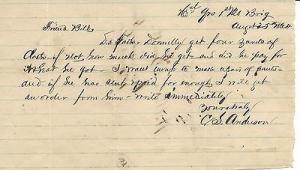 Hd Qrs 1st Brig
August 25th
Friend Bill
Did Father Donnelly get four yards of
Cloth if not, how much did he get and did he pay for
What he got - I want enough to make a pair of pants
and if he has only paid for enough I will get
an order from him - write immediately
Yours truly
C S Anderson